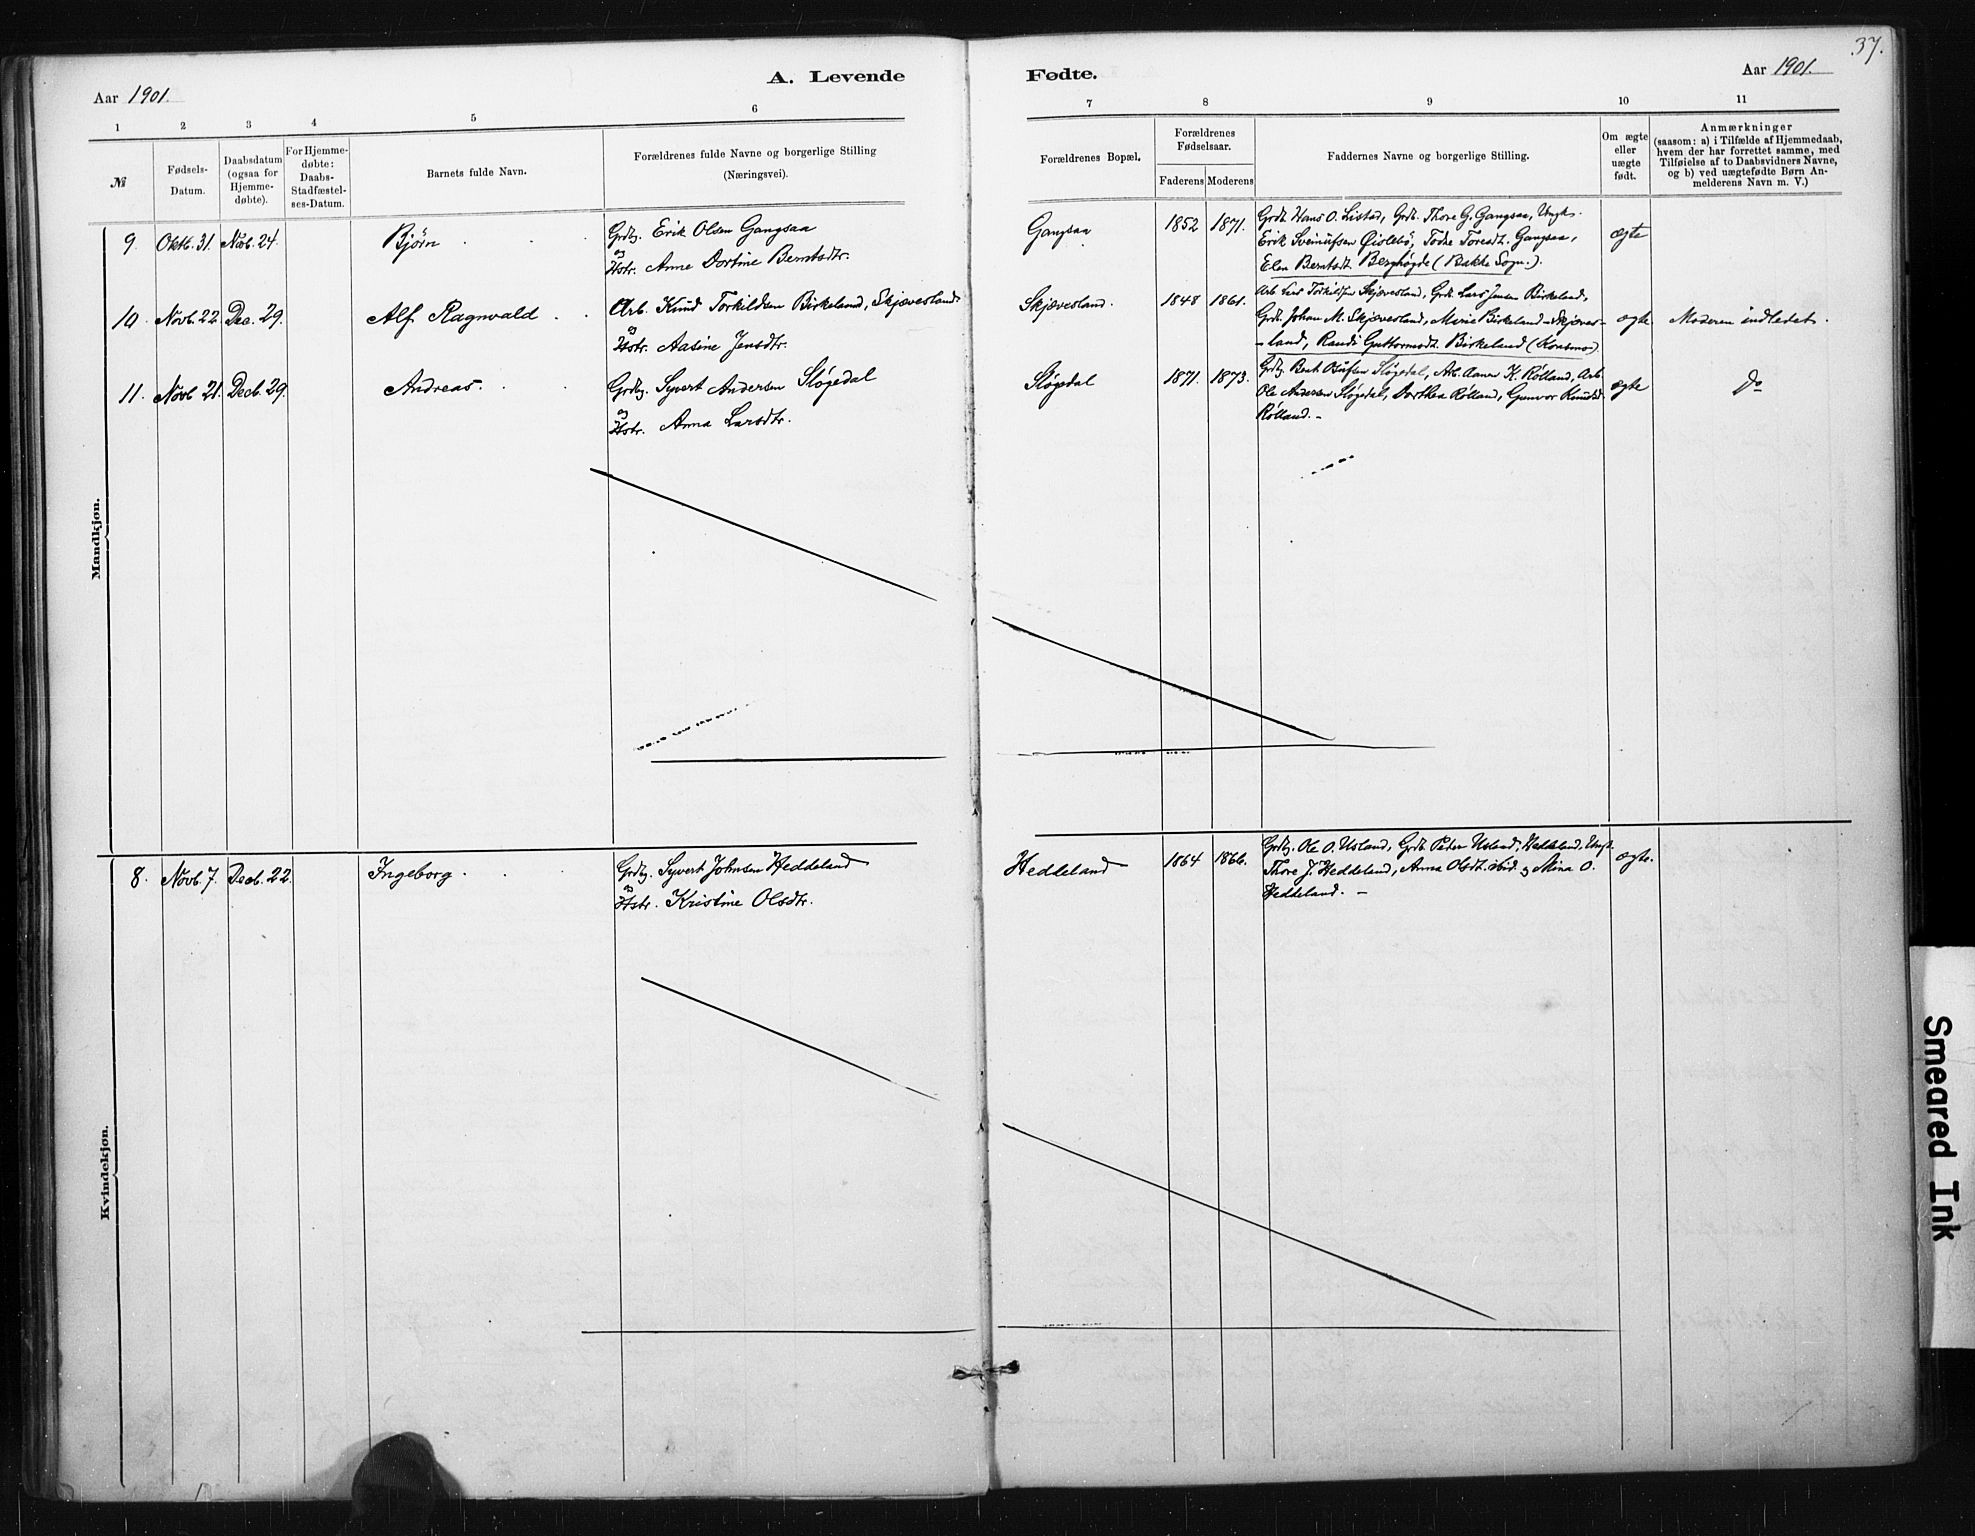 37.
A. Levende Fødte.
Aar 1901.
Aar 1901.
1 2 3 4 5 6 7 8 9 10 11
№
Fødsels-
Datum.
Daabsdatum
(ogsaa for
Hjemme-
døbte).
For Hjemme-
døbte:
Daabs-
Stadfæstel-
ses-Datum.
Barnets fulde Navn.
Forældrenes fulde Navne og borgerlige Stilling
(Næringsvei).
Forældrenes Bopæl.
Forældrenes
Fødselsaar.
Faderens Moderens
Faddernes Navne og borgerlige Stilling.
Om ægte
eller
uægte
født.
Anmærkninger
(saasom: a) i Tilfælde af Hjemmedaab,
hvem der har forrettet samme, med
Tilføielse af to Daabsvidners Navne,
og b) ved uægtefødte Børn An-
melderens Navn m. V.)
Mandkjøn.
9. Oktb. 31. Novb. 24. Bjørn
Grdbg. Erik Olsen Gangsaa
og Hstr. Anne Dortine Berntsdtr.
Gangsaa 1852 1871.
Grdb. Hans O. Listad, Grdb. Thore G. Gangsaa, Ungk.
Erik Øislebø, Toresdt. Gangsaa,
Elen Berntsdt. Berghøgde (Bakke Sogn.).
ægte
10. Novb. 22. Dec. 29. Alf Ragnvald
Arb. Knud Torkildsen Birkeland, Skjævesland
og Hstr. Aasine Jensdtr.
Skjævesland. 1848 1861.
Arb. Lars Torkildsen Skjævesland, Grdb. Lars Jensen Birkeland,
Grdb. Johan M. Skjævesland, Marie Birkeland-Skjæves-
-land, Randi Guttormsdt. Birkeland (Konsmo).
ægte Moderen indledet.
11. Novb. 21. Decb. 29. Andreas.
Grdbg. Syvert Andersen Sløgedal
og Hstr. Anna Larsdtr.
Sløgedal 1871. 1873.
Grdbg. Sløgedal, Arb. Aanen K. Rølland, Arb.
Ole Andersen Sløgedal, Dorthea Rølland, Gunvor Knudsd.
Rølland. –
ægte Do
Kvindekjøn.
8. Novb. 7. Decb. 22. Ingeborg.
Grdbg. Syvert Johnsen Heddeland
og Hstr. Kristine Olsdtr.
Heddeland 1864 1866.
Grdbg. Ole O. Usland, Grdb. Peder Usland, Heddeland, Ungk.
Thore J. Heddeland, Anna Olsdt. ibid. og Mina O.
Heddeland. –
ægte.
Smeared Ink